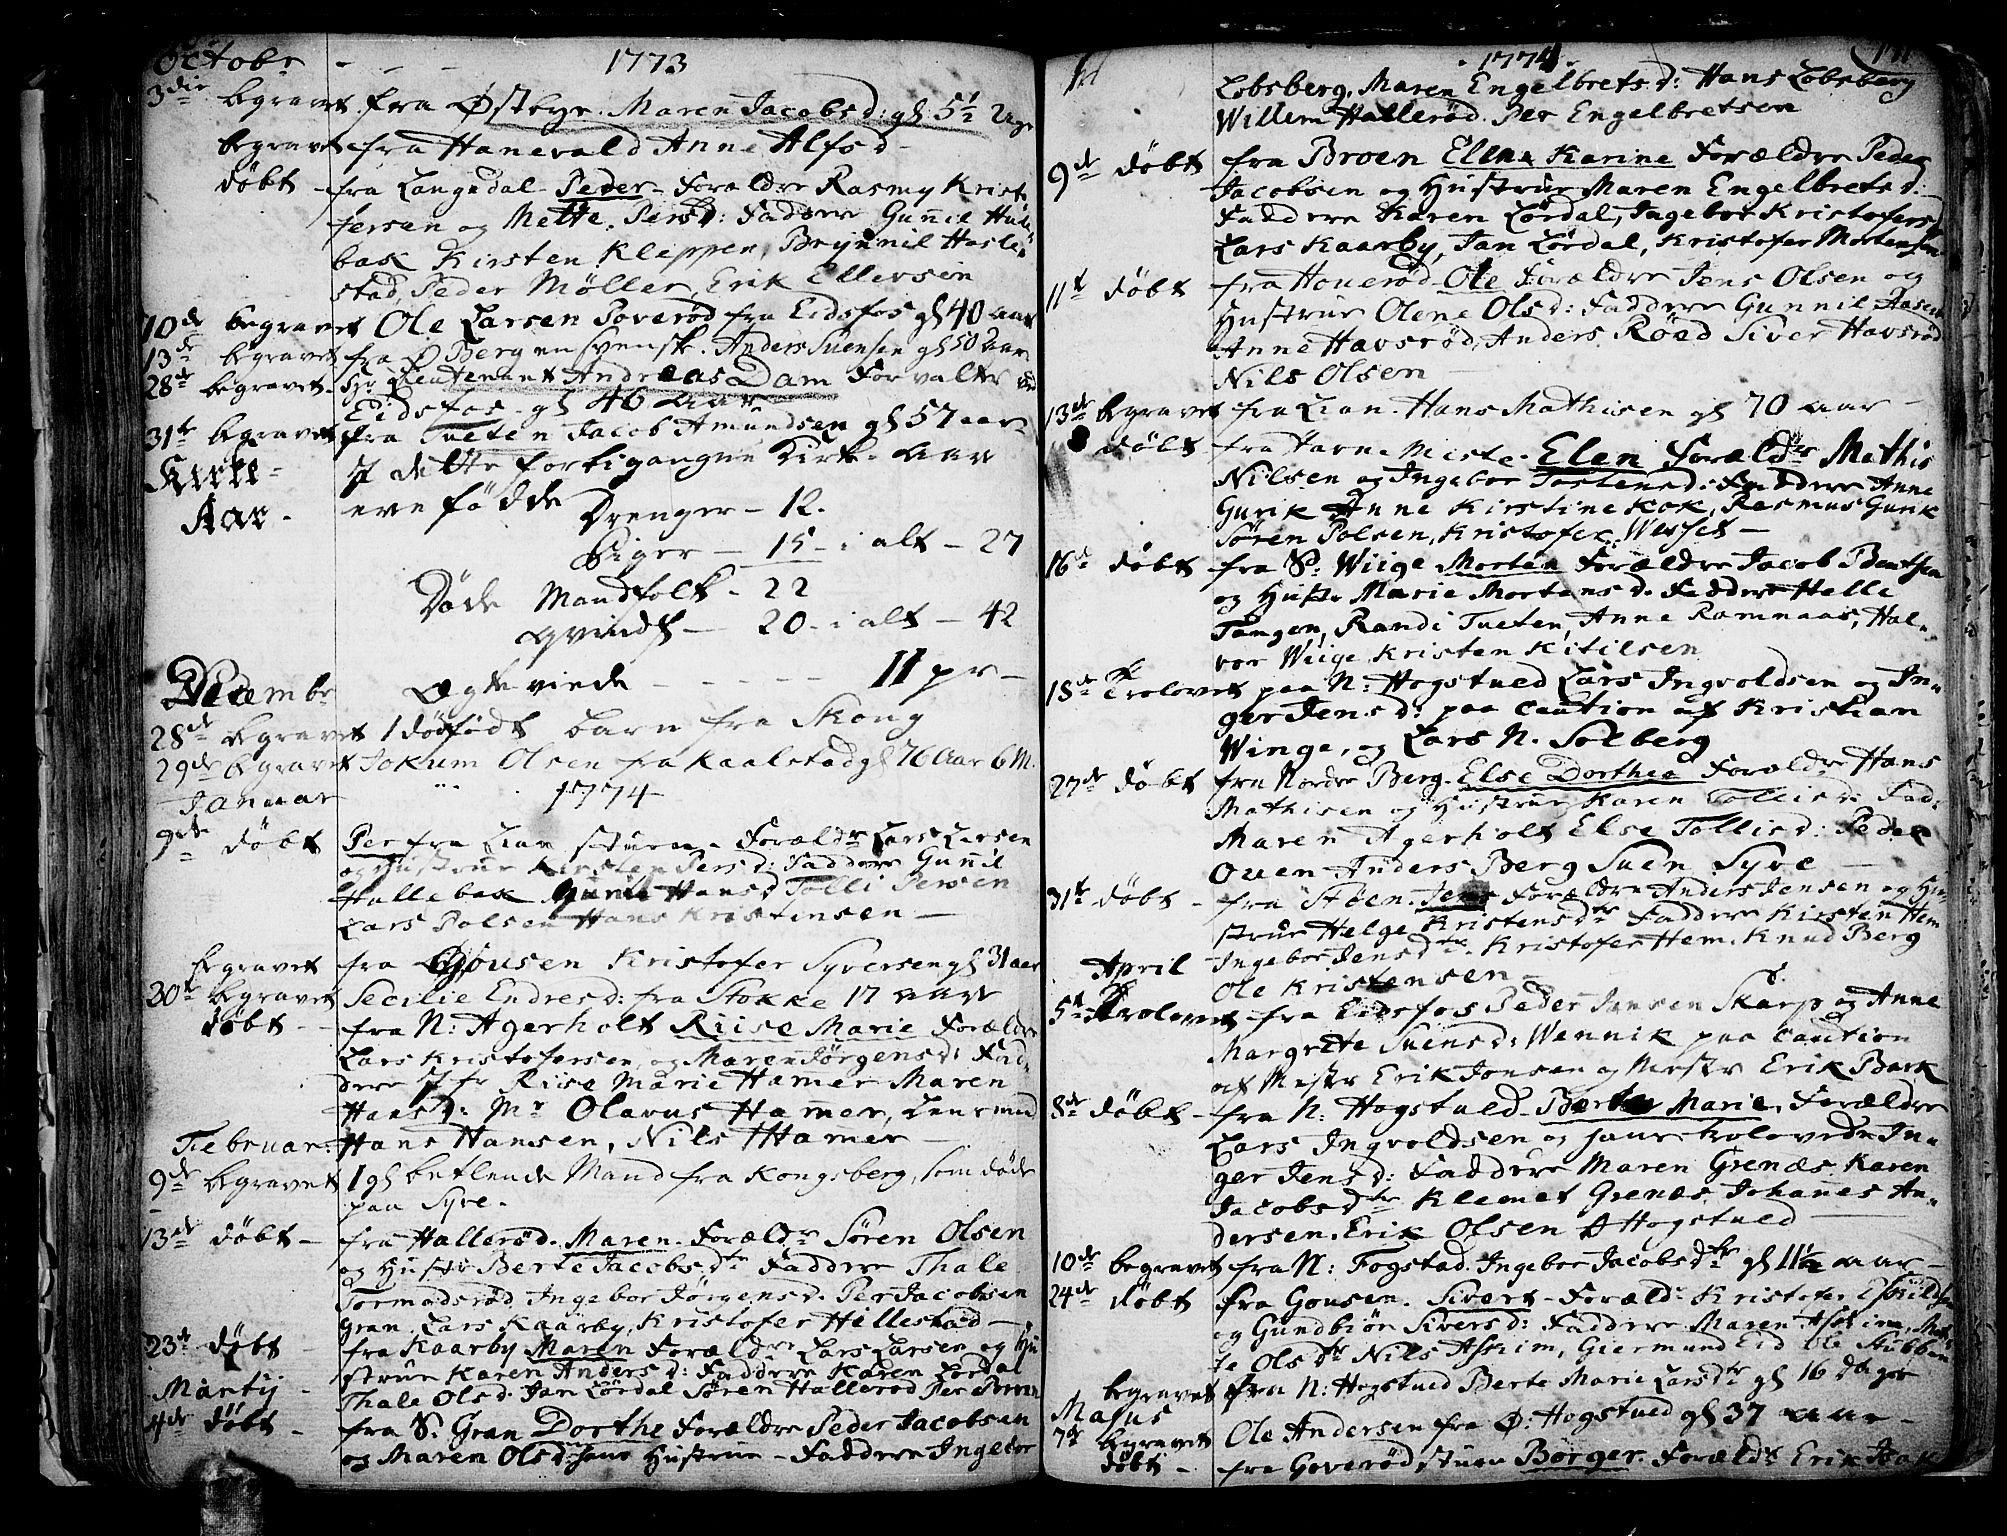 Octobr - - - 1773
3die begravet fra Østbye Maren Jacobsd: gl 5 1/2 Uge
begravet fra Hanevald Anne Alfsd
døbt - fra Langudal Peder Forældre Rasmy Krist
fersen og Mette Persd: Faddere Gunnil Hule
bak Kirsten Kleppen, Brynnil Hasle
stad, Peder Møller, Erik Ellevsen
10de begravet Ole Larsen Soverød fra Eidsfos gl 40 aar
13de begravet fra Ø Berg en Svensk Anders Suensen gl 50 Aar
28de begravet Sr Lieutenant Andreas Dam Forvalter ved
Eidsfos gl 46 aar
31te begravet fra Tueten Jacob Amundsen gl 57 aar
Kirke- I dette forbigangne Kirke-Aar
Aar- ere fødde Drenger - 12.
Piger - 15 - i alt - 27
Døde Mandfolk - 22
Qvindf - 20 - i alt - 42
Decembr Ægteviede - - - - - 11 pr -
28de begravet 1 dødfødt barn fra Skong
29de begravet Jokum Olsen fra Kaalstad gl 76 Aar 6 M.
Januar 1774
9de døbt Per fra Lian stuen Forældre Lars Larsen
og Hustrue Kirsten Persd: Faddere Gunnil
Hullebak Hansd Tolli Persen
Lars Polsen Hans Kristensen -
begravet fra Gousen Kristofer Syversen gl 31 aar
30te begravet Secilie Endresd: fra Stokke 17 aar
døbt - fra N: Agerholt Riise Marie Forældre
Lars Kristofersen og Maren Jørgensd: Fad-
dere Jfr Riise Marie Hamer Maren
Hansd: Mr Olavus Hamer, Lensmand
Februar: Hans Hansen, Nils Hamer -
9de begravet 1 gl betlende Mand fra Kongsberg, som døde
paa Syre.
13de døbt - fra Hallerød. Maren. Forældr Søren Olsen
og Hustr Berte Jacobsdtr Faddere Thale
Tormodsrød, Ingebor Jørgensd. Per Jacobsen
Gran, Lars Kaarby, Kristofer Hillestad -
23de døbt - fra Kaarby Maren Forældre Lars Larsen og Hu
strue Karen Andersd: Faddere Karen Lørdal
Martij - Thale Olsd. Jan Lørdal Søren Hallerød Per
4de døbt - fra S. Gran Dorthe Forældre Peder Jacobsen
og Maren Olsd: hans Hustrue - Faddere Ingebor
1774
Lobsberg, Maren Engelbretsd: Hans Lobsberg
Willem Hallerød. Per Engelbretsen
9de døbt fra Broen Ellen Karine Forældre Peder
Jacobsen og Hustrue Maren Engelbretsd:
Faddere Karen Lørdal, Ingebor Kristofersd
Lars Kaarby, Jan Lørdal, Kristofer Mortensen
11te døbt fra Houerød Ole Forældre Jens Olsen og
Hustrue Olene Olsd: Faddere Gunnil
Anne Havsrød, Anders Røed Siver Havsrød
Nils Olsen -
13de begravet fra Lian. Hans Mathisen gl 70 aar -
døbt fra Elen Forældr Mathis
Nilsen og Ingebor Tostensd: Faddere Anne
Gurik Anne Kirstine Kok, Rasmus Gurik
Søren Polsen, Kristofer Wessel -
16de døbt fra S: Wiige Morten Forældre Jacob Bentsen
og Hustr Marie Mortensd. Faddere Helle
Tangen, Randi Tueten, Anne Ramnaas, Hal-
vor Wiige Kristen Kitilsen
18de Trolovet paa N: Hogstued Lars Ingvoldsen og In-
ger Jensd: paa caution af Kristian
Winge, og Lars N. Solberg
27de døbt fra Nordre Berg. Else Dorthea Forældre Hans
Mathisen og Hustrue Karen Tollisd: Fad:
Maren Agerholt Else Tollisd: Peder
Ouen Anders Berg Suen Syre -
31te døbt - fra Støen. Jens Forældre Anders Jensen og Hu-
strue Helge Kristensdtr Faddere Kirsten Hem
Ingebor Jensdtr. Kristofer Hem. Knud Berg
April Ole Kristensen -
5te Trolovet fra Eidsfos Peder Jansen Skarp og Anne
Margrete Suensd: Wennik paa caution
af Mestr Erik Jonsen og Mestr Erik Bark
8de døbt - fra N: Hogstued - Berte Marie. Forældre
Lars Ingvoldsen og hans trolovede In-
ger Jensd: Faddere Maren Grenæs Karen
Jacobsdtr Klemet Grenæs, Johanes An-
dersen. Erik Olsen Ø Hogstued -
10de begravet fra N: Fogstad. Ingebor Jacobsdtr gl 11 1/2 aar -
24de døbt fra Gousen. Sivert - Foræld: Kristofer Eskildsen
og Gundbiør Siversd: Faddere Maren Askim, Met-
te Olsdtr Nils Askim, Giermund Eid Ole Stubben
begravet fra N: Hogstued Berte Marie Larsdtr gl 16 dage
Majus
7de begravet Ole Andersen fra Ø: Hogstued gl 37 aar -
døbt - fra Goverød stuen Børger. Forældr Erik